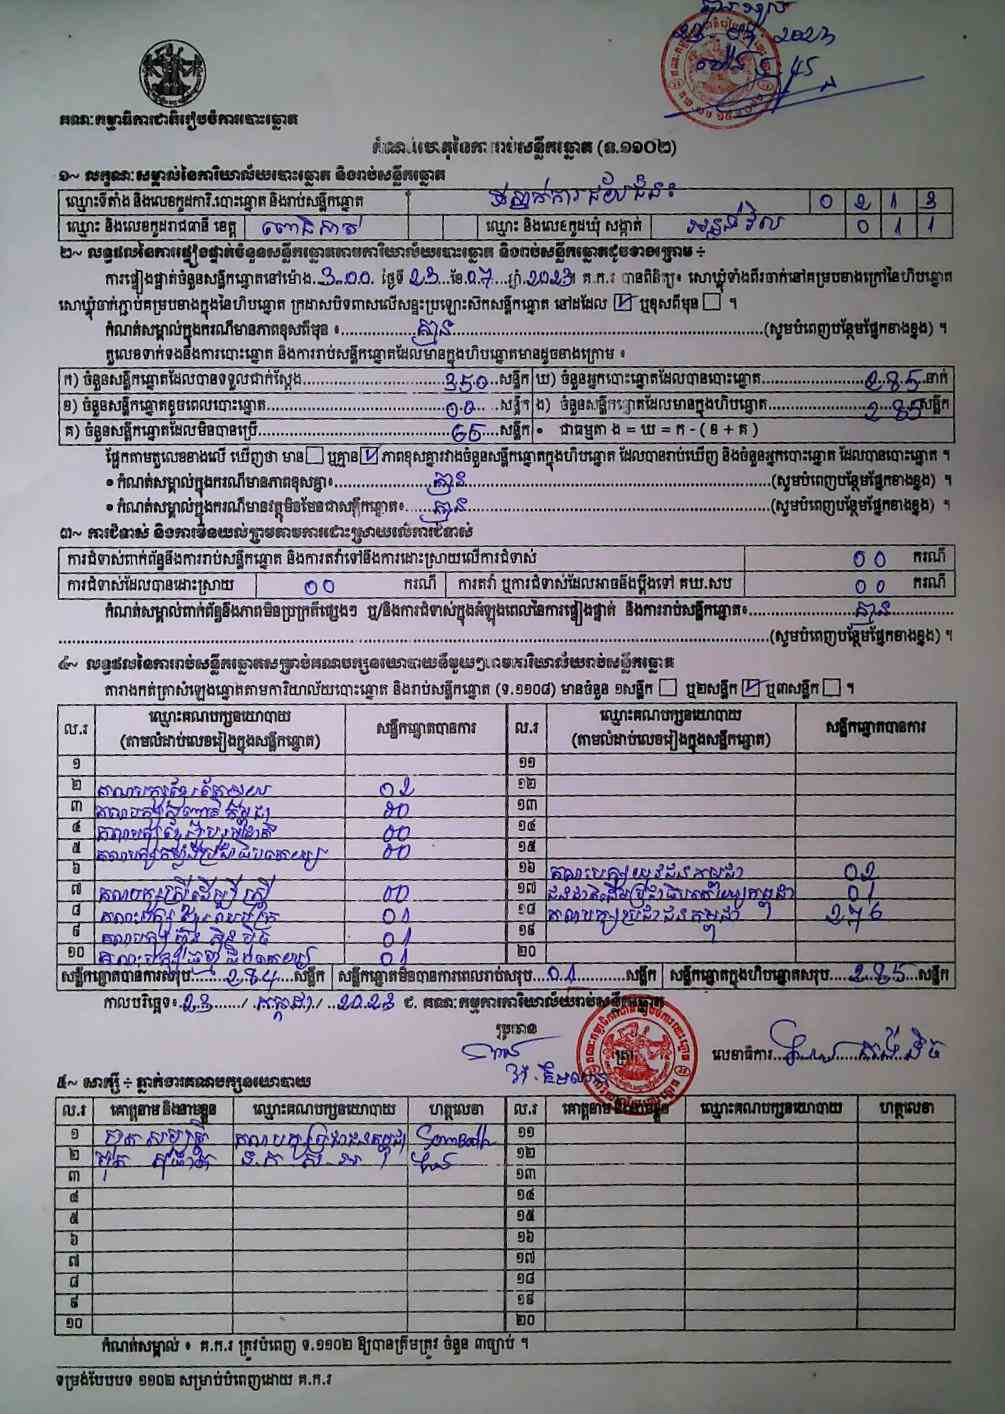 គណៈកម្មាធិការជាតិរៀបចំការបោះឆ្នោត
កំណត់ហេតុនៃការរាប់សន្លឹកឆ្នោត (ទ.១១០២)
១~ លក្ខណៈសម្គាល់នៃការិយាល័យបោះឆ្នោត និងរាប់សន្លឹកឆ្នោត
ឈ្មោះទីតាំង និងលេខកូដការិ.បោះឆ្នោត និងរាប់សន្លឹកឆ្នោត 0 2 1 3
ឈ្មោះ និងលេខកូដរាជធានី ខេត្ត ពោធិ៍សាត់ ឈ្មោះ និងលេខកូដឃុំ សង្កាត់ 0 1 1
២~ លទ្ធផលនៃការផ្ទៀងផ្ទាត់ចំនួនសន្លឹកឆ្នោតតាមការិយាល័យបោះឆ្នោត និងរាប់សន្លឹកឆ្នោតដូចខាងក្រោម ÷
ការផ្ទៀងផ្ទាត់ចំនួនសន្លឹកឆ្នោតនៅម៉ោង 3.00 ថ្ងៃទី 23 ខែ 07 ឆ្នាំ 2023 គ.ក.រ បានពិនិត្យ៖ សោឃ្លុំទាំងពីរចាក់នៅគម្របខាងក្រៅនៃហិបឆ្នោត
សោឃ្លុំចាក់ភ្ជាប់គម្របខាងក្នុងនៃហិបឆ្នោត ក្រដាសបិទពាសលើសន្ទះប្រឡោះសៀតសន្លឹកឆ្នោត នៅដដែល ☑ ឬខុសពីមុន ☐ ។
កំណត់សម្គាល់ក្នុងករណីមានភាពខុសពីមុន ៖ គ្មាន (សូមបំពេញបន្ថែមផ្នែកខាងខ្នង) ។
តួលេខទាក់ទងនឹងការបោះឆ្នោត និងការរាប់សន្លឹកឆ្នោតដែលមានក្នុងហិបឆ្នោតមានដូចខាងក្រោម ៖
ក) ចំនួនសន្លឹកឆ្នោតដែលបានទទួលជាក់ស្តែង 350 សន្លឹក ឃ) ចំនួនអ្នកបោះឆ្នោតដែលបានបោះឆ្នោត 285 នាក់
ខ) ចំនួនសន្លឹកឆ្នោតខូចពេលបោះឆ្នោត 00 សន្លឹក ង) ចំនួនសន្លឹកឆ្នោតដែលមានក្នុងហិបឆ្នោត 285 សន្លឹក
គ) ចំនួនសន្លឹកឆ្នោតដែលមិនបានប្រើ 65 សន្លឹក • ជាធម្មតា ង = ឃ = ក - ( ខ + គ )
ផ្អែកតាមតួលេខខាងលើ ឃើញថា មាន ☐ ឬគ្មាន ☑ ភាពខុសគ្នារវាងចំនួនសន្លឹកឆ្នោតក្នុងហិបឆ្នោត ដែលបានរាប់ឃើញ និងចំនួនអ្នកបោះឆ្នោត ដែលបានបោះឆ្នោត ។
• កំណត់សម្គាល់ក្នុងករណីមានភាពខុសគ្នា៖ គ្មាន (សូមបំពេញបន្ថែមផ្នែកខាងខ្នង) ។
• កំណត់សម្គាល់ក្នុងករណីមានវត្ថុមិនមែនជាសន្លឹកឆ្នោត៖ គ្មាន (សូមបំពេញបន្ថែមផ្នែកខាងខ្នង) ។
៣~ ការជំទាស់ និងការមិនយល់ព្រមតាមការដោះស្រាយលើការជំទាស់
ការជំទាស់ពាក់ព័ន្ធនឹងការរាប់សន្លឹកឆ្នោត និងការតវ៉ាទៅនឹងការដោះស្រាយលើការជំទាស់ 00 ករណី
ការជំទាស់ដែលបានដោះស្រាយ 00 ករណី ការតវ៉ា ឬការជំទាស់ដែលអាចនឹងប្តឹងទៅ គឃ.សប 00 ករណី
កំណត់សម្គាល់ពាក់ព័ន្ធនឹងភាពមិនប្រក្រតីផ្សេងៗ ឬ/និងការជំទាស់ក្នុងអំឡុងពេលនៃការផ្ទៀងផ្ទាត់ និងការរាប់សន្លឹកឆ្នោត៖ គ្មាន
(សូមបំពេញបន្ថែមផ្នែកខាងខ្នង) ។
៤~ លទ្ធផលនៃការរាប់សន្លឹកឆ្នោតសម្រាប់គណបក្សនយោបាយនីមួយៗតាមការិយាល័យរាប់សន្លឹកឆ្នោត
តារាងកត់ត្រាសំឡេងឆ្នោតតាមការិយាល័យបោះឆ្នោត និងរាប់សន្លឹកឆ្នោត (ទ.១១០៨) មានចំនួន ១សន្លឹក ☐ ឬ២សន្លឹក ☑ ឬ៣សន្លឹក ☐ ។
ល.រ ឈ្មោះគណបក្សនយោបាយ (តាមលំដាប់លេខរៀងក្នុងសន្លឹកឆ្នោត) សន្លឹកឆ្នោតបានការ ល.រ ឈ្មោះគណបក្សនយោបាយ (តាមលំដាប់លេខរៀងក្នុងសន្លឹកឆ្នោត) សន្លឹកឆ្នោតបានការ
១ ១១
២ 02 ១២
៣ 00 ១៣
៤ 00 ១៤
៥ 00 ១៥
៦ ១៦ គណបក្សយុវជនកម្ពុជា 02
៧ គណបក្សស្រីដើម្បីស្ត្រី 00 ១៧ 01
៨ 01 ១៨ គណបក្សប្រជាជនកម្ពុជា 276
៩ 01 ១៩
១០ 01 ២០
សន្លឹកឆ្នោតបានការសរុប 284 សន្លឹក សន្លឹកឆ្នោតមិនបានការពេលរាប់សរុប 01 សន្លឹក សន្លឹកឆ្នោតក្នុងហិបឆ្នោតសរុប 285 សន្លឹក
កាលបរិច្ឆេទ៖ 23 / កក្កដា / 2023 ៩. គណៈកម្មការការិយាល័យរាប់សន្លឹកឆ្នោត
ប្រធាន
លេខាធិការ
៥~ សាក្សី ÷ ភ្នាក់ងារគណបក្សនយោបាយ
ល.រ គោត្តនាម និងនាមខ្លួន ឈ្មោះគណបក្សនយោបាយ ហត្ថលេខា ល.រ គោត្តនាម និងនាមខ្លួន ឈ្មោះគណបក្សនយោបាយ ហត្ថលេខា
១ គណបក្សប្រជាជនកម្ពុជា ១១
២ ១២
៣ ១៣
៤ ១៤
៥ ១៥
៦ ១៦
៧ ១៧
៨ ១៨
៩ ១៩
១០ ២០
កំណត់សម្គាល់ ៖ គ.ក.រ ត្រូវបំពេញ ទ.១១០២ ឱ្យបានត្រឹមត្រូវ ចំនួន ៣ច្បាប់ ។
ទម្រង់បែបបទ ១១០២ សម្រាប់បំពេញដោយ គ.ក.រ